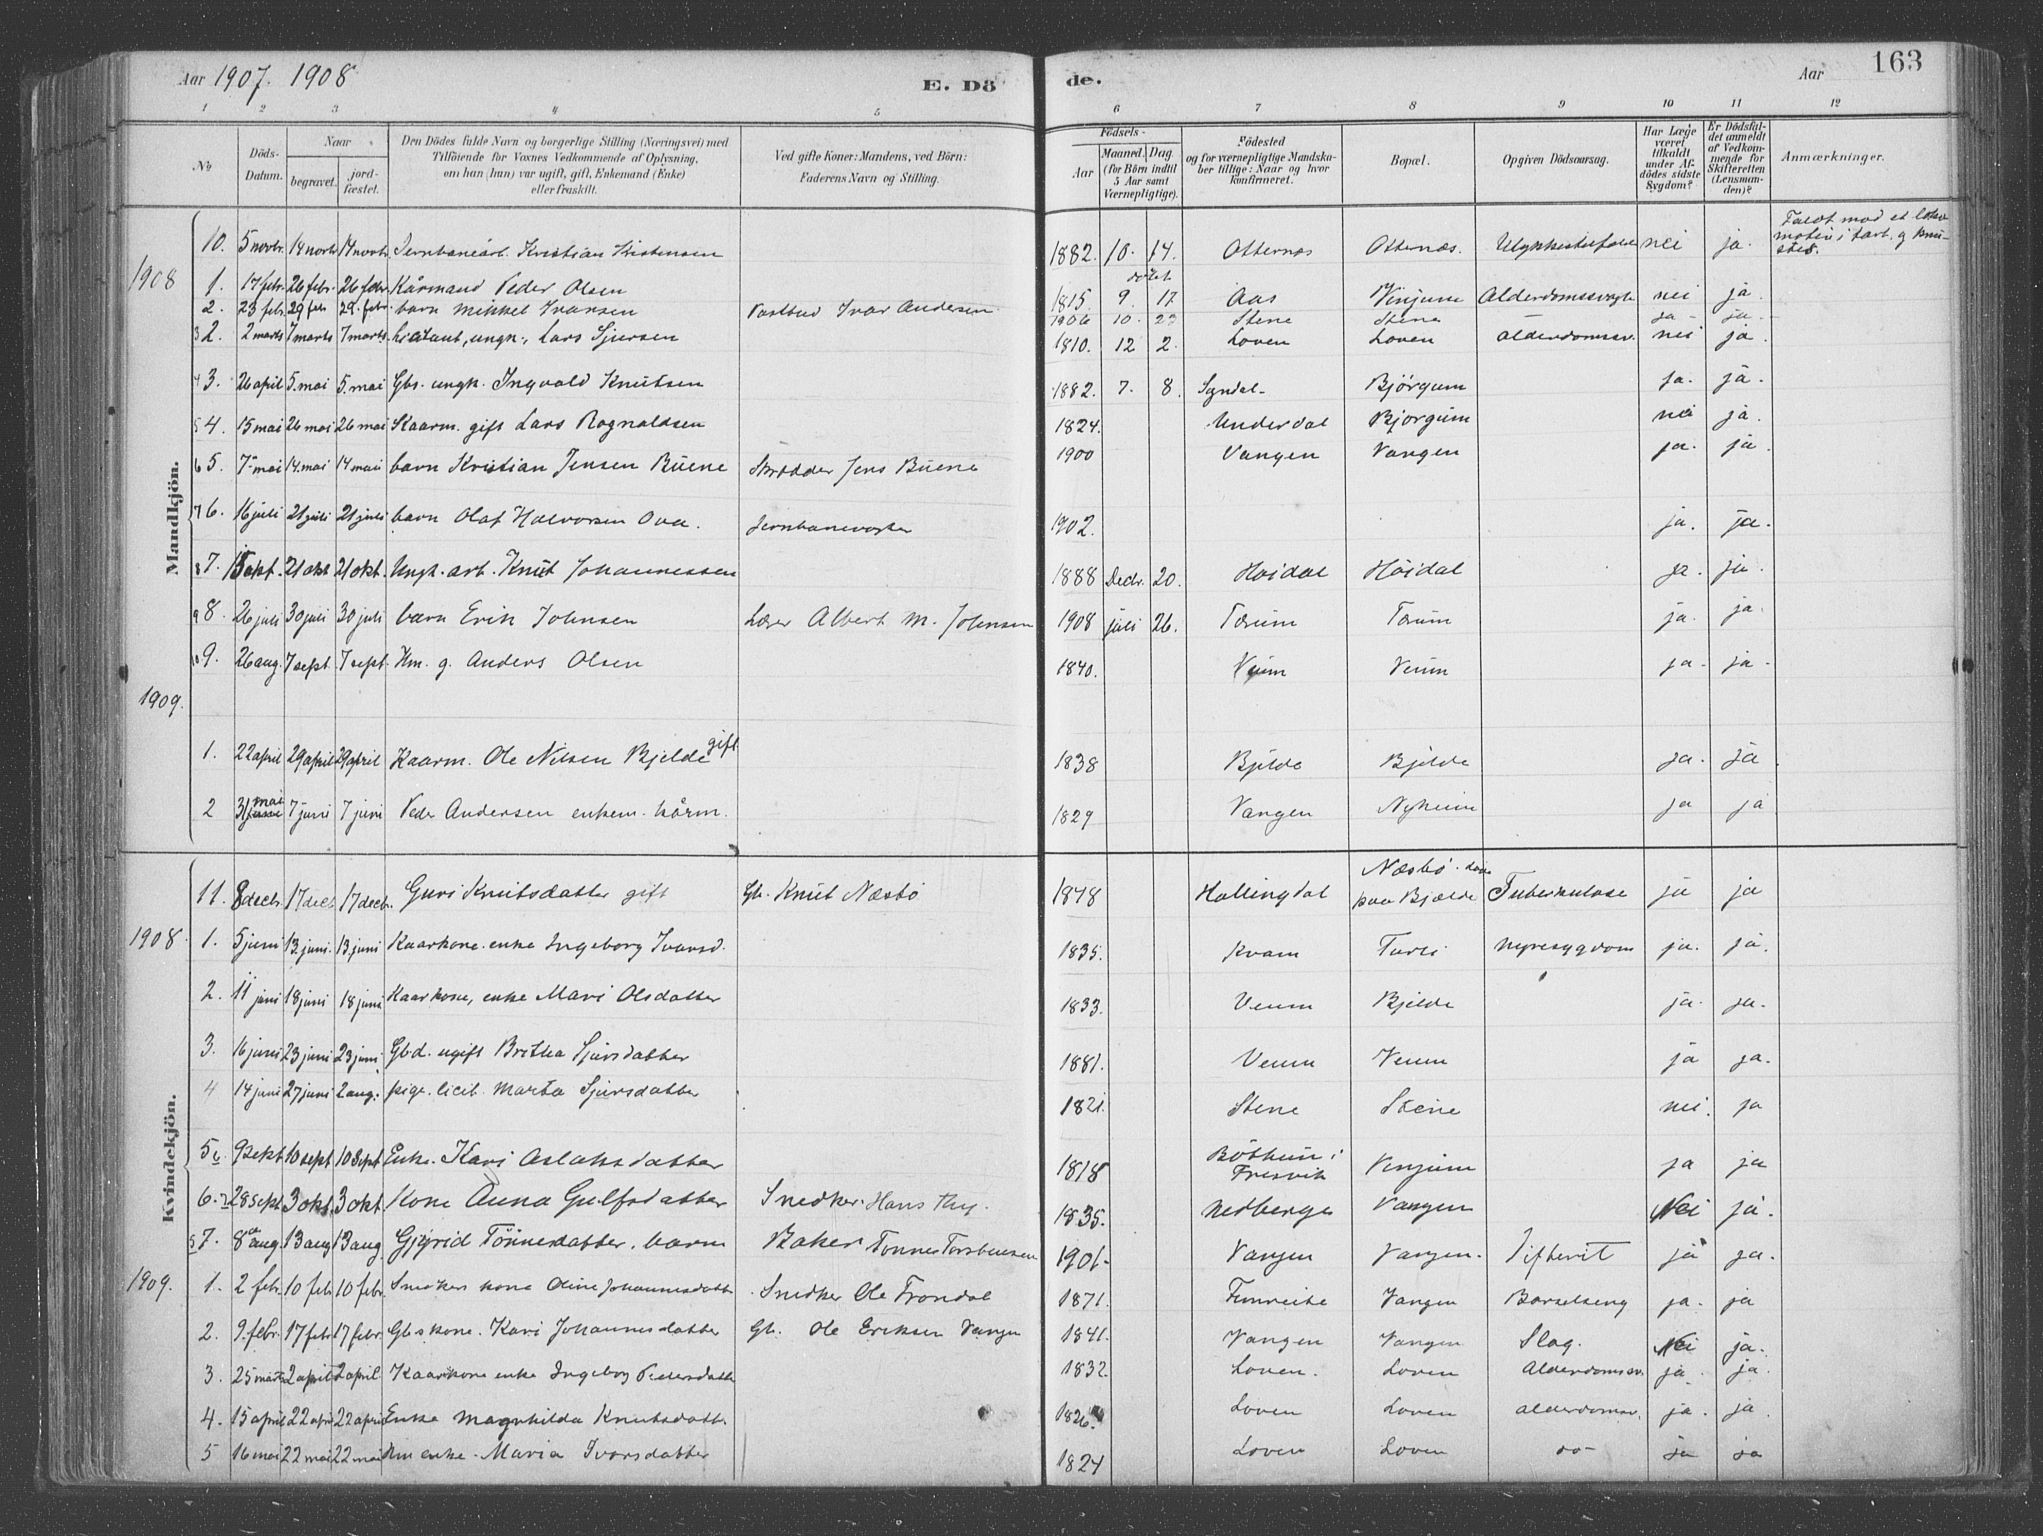 Aar 1907. 1908 E. Dö de. Aar 163
1 2 3 4 5 6 7 8 9 10 11 12
No
Döds-Datum.
Naar
begravet.
jord-fæstet.
Den Dödes fulde Navn og borgerlige Stilling (Næringsvei) med
Tilföiende for Voxnes Vedkommende af Oplysning,
om han (hun) var ugift, gift, Enkemand (Enke)
eller fraskilt.
Ved gifte Koner: Mandens, ved Börn:
Faderens Navn og Stilling.
Födsels-
Aar
Maaned. Dag
(for Börn indtil
5 Aar samt
Værnepligtige).
Födested
og for værnepligtige Mandska-
ber tillige: Naar og hvor
konfirmeret.
Bopæl.
Opgiven Dödsaarsag.
Har Læge
været
tilkaldt
under Af-
dödes sidste
Sygdom?
Er Dödsfal-
det anmeldt
af Vedkom-
mende for
Skifteretten
(Lensman-
den)?
Anmærkninger.
Mandkjön.
10. 5 novbr. 14 novb 14 novb. Jernbanearb. Kristian Kristensen 1882. 10. 14. Otternes Otternæs. Ulykkestilfælde nei ja.
1908 1. 17 febr. 26 febr. 26 febr. Kårmand Peder Olsen 1815 9. 17 Aas Vinjum Alderdomssvagh nei ja
2. 23 febr. 29 feb 29. febr. barn Mikkel Ivarsen Ivar Andersen 1906 10. 23 Stene Stene ja ja
3 2. 2 marts 7 marts 7 marts. ungk., Lars Sjursen 1810. 12 2. Loven Loven alderdomssv. nei ja.
4 3. 26 april 5. mai 5. mai Gbs. ungk. Ingvald Knutsen 1882. 7. 8. Bjørgum ja. ja.
5 4. 15 mai 26 mai 26 mai Kaarm. gift Lars Ragnaldsen 1824. Underdal Bjorgum nei ja.
6 5. 7 mai 14. mai 14 mai barn Kristian Jensen Buene Skrædder Jens Buene 1900 Vangen Vangen ja. ja.
7 6. 16 juli 21 juli 21 juli barn Olaf Halvorsen Jernbanevogter 1902. ja. ja.
8 7. 15 okt. 21 okt 21 okt. Ungk. arb. Knut Johannessen 1888 Decbr. 20. Høidal Høidal ja. ja.
9 8. 26 juli 30 juli 30 juli barn Erik Johnsen Lærer Albert M. Johnsen 1908 juli 26. Tærum Tærum ja. ja.
10 9. 26 aug. 7 sept. 7 sept. Hm. g. Anders Olsen 1840. Veum Veum ja. ja.
1909.
1. 22 april 29 april 29 april Kaarm. Ole Nilsen Bjelde gift 1838 Bjelde Bjelde ja. ja
2 31 mai 7 juni 7 juni Peder Andersen enkem. kårm. 1829 Vangen Nyheim ja ja
Kvindekjön.
11. 8 decb. 17 dec. 17 decb. Guri Knutsdatter gift Gb. Knut Næsbø 1878 Hallingdal Næsbø paa Bjælde Tuberkulose ja ja
1908. 1. 5 juni 13. juni. 13. juni Kaarkone. enke Ingeborg Ivarsd. 1835. Kvam Turli nyresygdom ja. ja.
2. 11 juni 18 juni 18 juni Kaarkone, enke Mari Olsdatter 1833. Veum Bjelde ja. ja.
3. 16 juni 23 juni 23 juni Gbd. ugift Britha Sjursdatter 1881. Veum Veum ja ja.
4 14 juni 27 juni 2 aug. pige. Marta Sjursdatter 1821. Stene Stene nei. ja
5 9 sekt 10 sept 10 Sept. Enke. Kari Aslaksdatter 1818 Bøthun i Fresvik Vinjum ja ja
6. 28 sept 3 okt. 3 okt. Kone Anna Gulfsdatter Snedker Hans Thy. 1835. Nedberge Vangen Nei ja.
7. 8 aug. 13 aug 13 aug. Gjyrid Tönnesdatter. barn Baker Tønnes Torstensen 1901. Vangen Vangen. Difterit ja ja.
1909. 1. 2 febr. 10 feb 10 febr. Snedkers kone Oline Johannesdatt Snedker Ole Frondal 1871. Fimreite Vangen Barselseng ja. ja
2. 9. febr. 17 febr 17 febr. Gbs kone. Kari Johannesdatter Gb. Ole Eriksen Vangen 1841. Vangen Vangen Slag. Nei ja.
3. 25 marts 2 april 2 april Kaarkone enke Ingeborg Pedersdatt 1832. Loven. Loven Alderdomssv. ja. ja.
4. 15 april 22 april 22 april Enke Magnhilda Knutsdatt. 1826. Loven Loven alderdomsv. ja. ja.
5 16 mai 22 mai 22 mai Hm enke. Maria Ivarsdatter 1824 Loven Loven do- ja ja